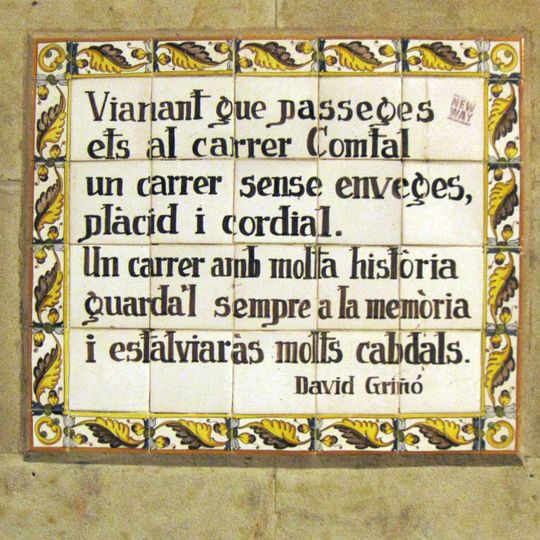 Vianant que passeges
NEW WAY
ets al carrer Comtal
un carrer sense enveges,
plàcid i cordial.
Un carrer amb molta història
guarda'l sempre a la memòria
i estalviaràs molts cabdals.
David Griñó